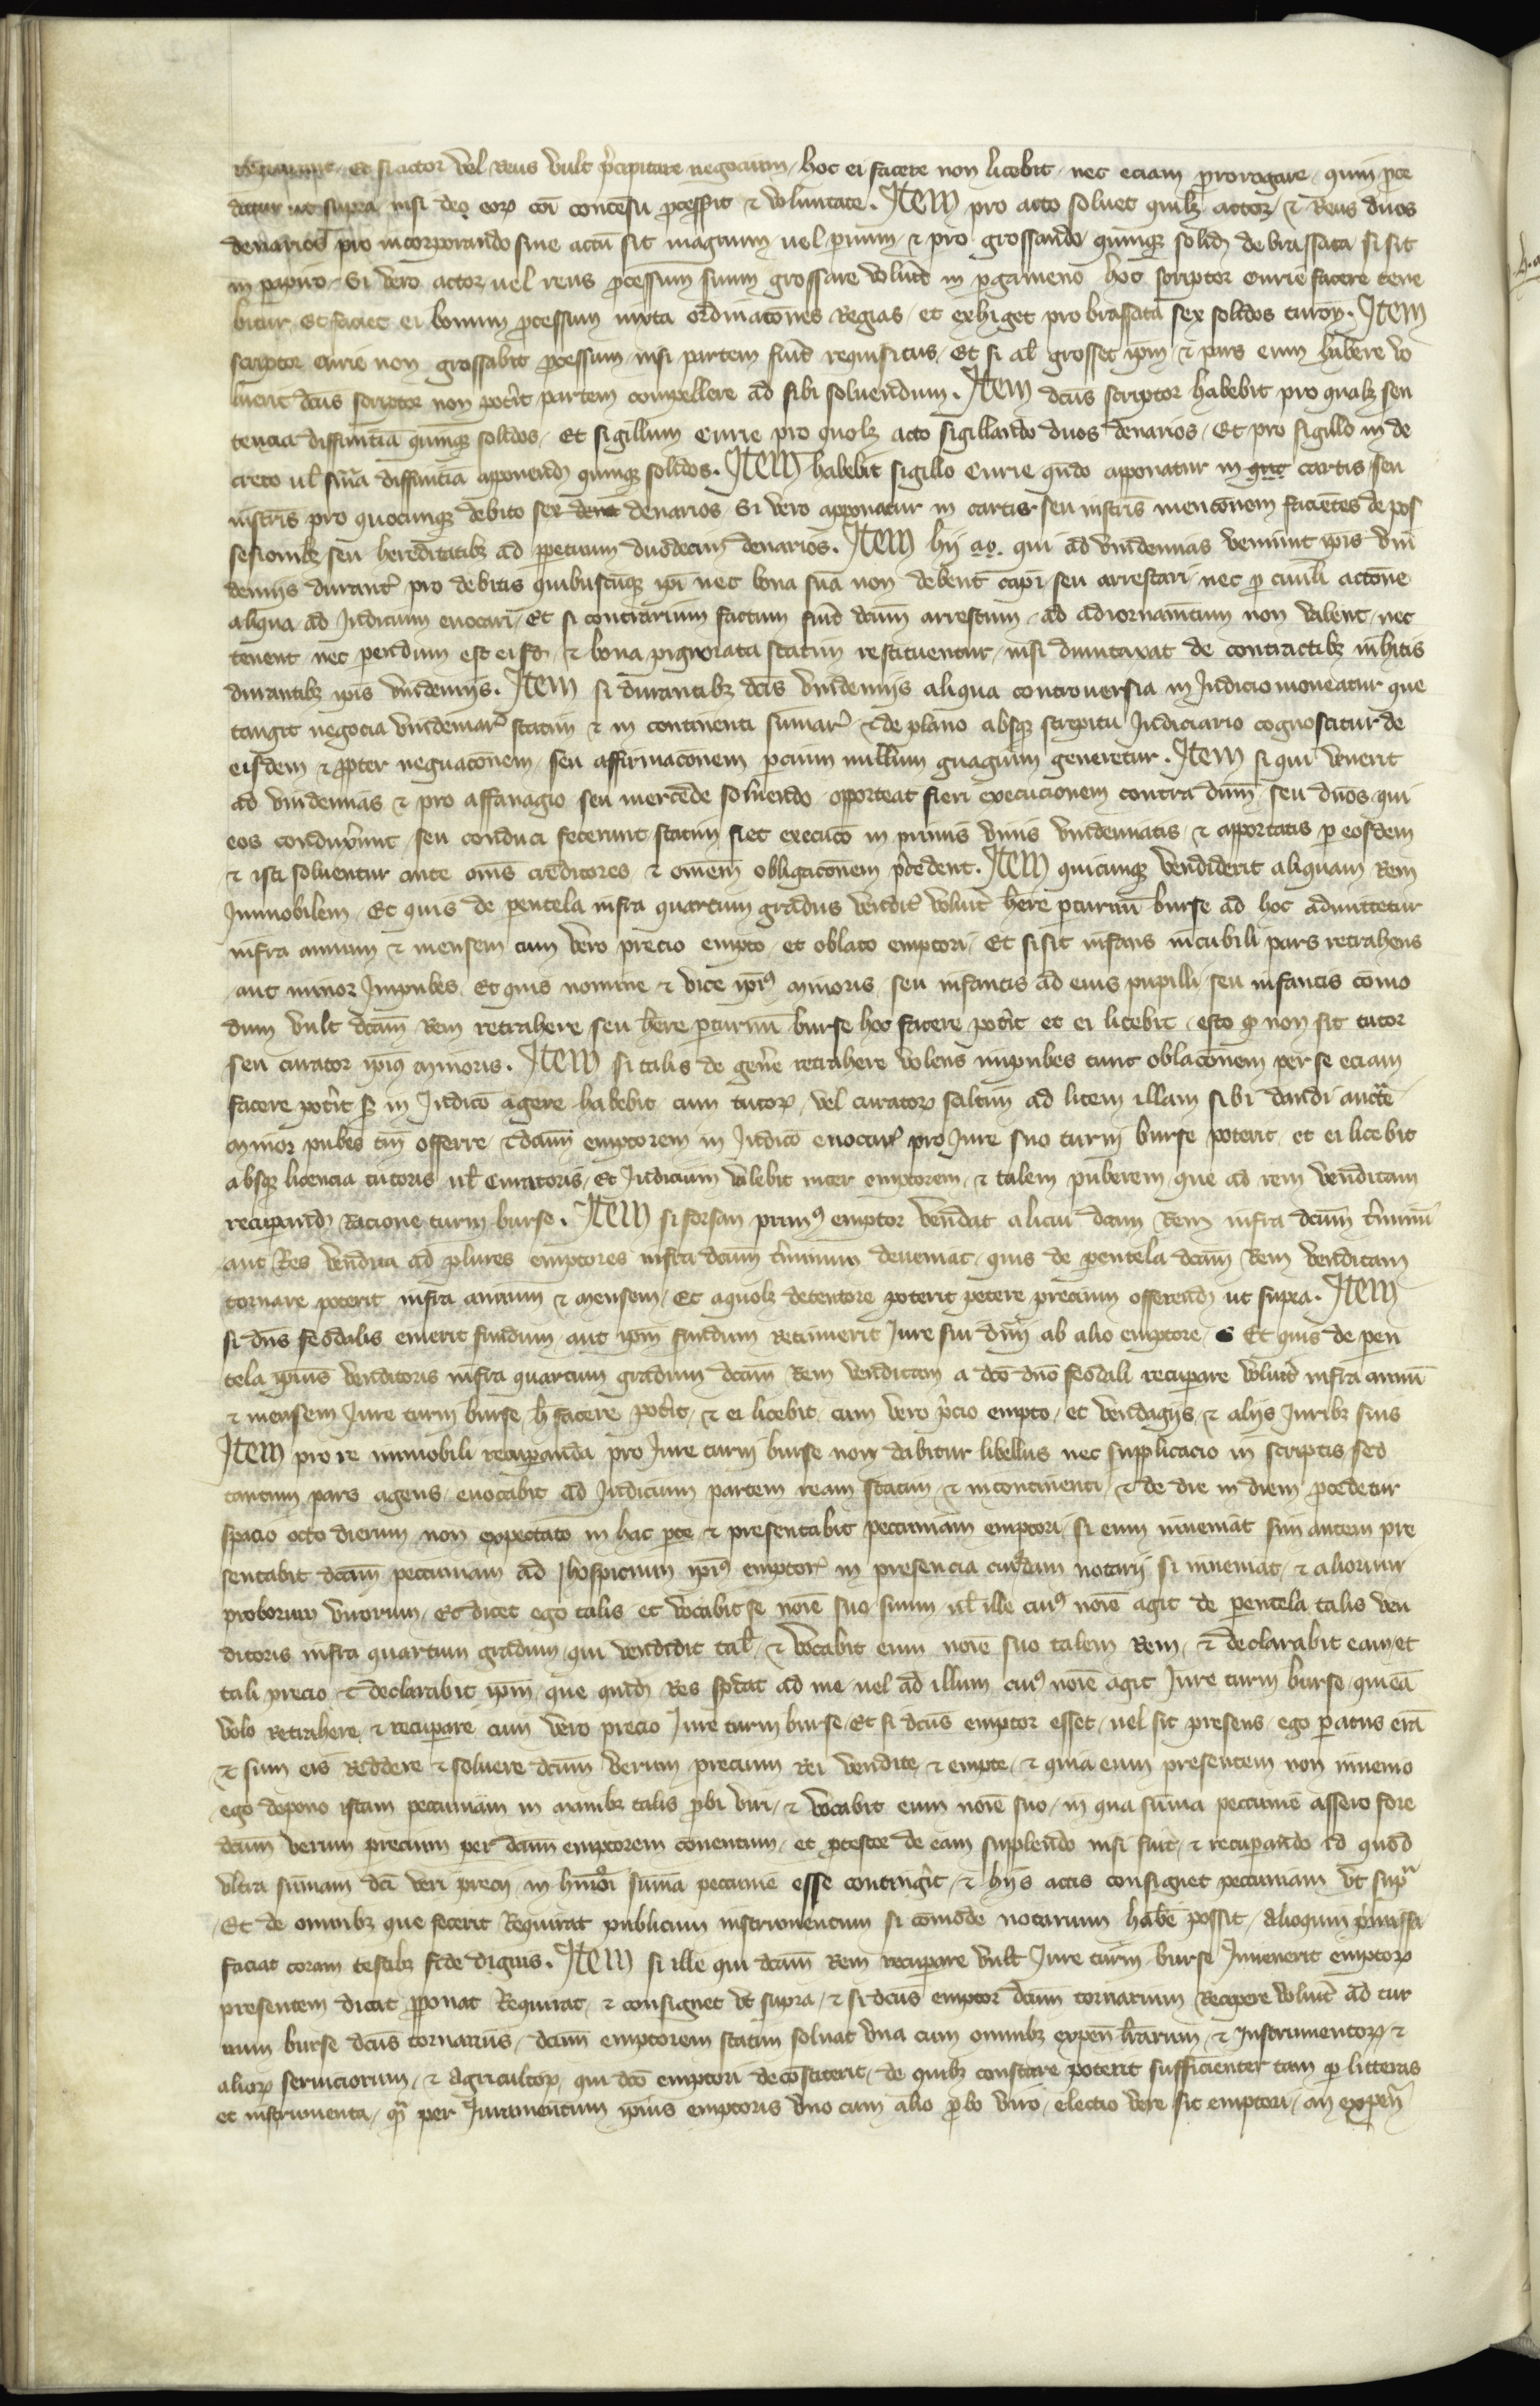 Et si actor vel Reus vult p̄cipitare negocium / hoc ei facere non licebit / nec eciam prorogare / quin proce
datur ut supra nisi de eoꝝ cōi concēsu processit & voluntate . Item pro acto soluet quilꝫ actor & Reus duos
denarios pro incorporando siue actū sit magnum / uel paruum / & pro grossando quinqꝫ solid de brassata si sit
in papiro / Si vero actor uel reus processum suum grossare voluerit in pergameno hoc scriptor curie facere tene
bitur Et faciet ei bonum processum iuxta ordinacōnes Regias / et exhiget pro brassata sex solidos turoñ . Item
scriptor curie non grossabit processum nisi partem fuerit requisitus / Et si al grosset ipm / & pars eum habere vo
luerit dcūs scriptor non poterit partem compellere ad sibi soluendum . Item dcūs scriptor habebit pro qualꝫ sen
tencia diffinitiā quinqꝫ solidos / Et sigillum Curie pro quolꝫ acto sigillando duos denarios / Et pro sigillo in de
creto ul sniā diffinitiā apponend quinqꝫ solidos . Item habebit sigillo Curie qn̄do apponatur in cartis seu
instris pro quocunqꝫ debito sex denarios Si vero apponatur in cartis seu instris mencōnem facientes de pos
sesionibꝫ seu hereditatibꝫ ad perpetuum duodecim denarios . Item hij qui ad vindemias veniunt ip̄is vin
demijs durantibꝫ pro debitis quibuscūqꝫ ip̄i nec bona sua non debent capi seu arrestari / nec per ciuili actōne
aliqua ad Judicium euocari / Et si contrarium factum fuerit dcūm arrestum / ad adiornamētum non valent / nec
tenent nec parendum est eisd / & bona pignorata statim restituentur / nisi dumtaxat de contractibꝫ inhitis
durantibꝫ ip̄is vindemijs . Item si durantibꝫ dcīs vindemijs aliqua controuersia in Judicio moueatur que
tangit negocia vindemiar statim & in continenti sumarie & de plano absqꝫ strepitu Judiciario cognoscitur de
eisdem & propter negacōnem / seu affirmacōnem parcium nullum guagium generetur . Item si qui venerit
ad vindemias & pro affanagio seu mercede soluendo opporteat fieri execucionem contra dn̄m seu dn̄os qui
eos conduxerunt / seu conduci fecerunt statim fiet execucō in primis vinis vindemiatis & apportatis per eosdem
& isti soluentur ante om̄s creditores & omnem obligacōnem p̄cedent . Item quicunqꝫ vendiderit aliquam Rem
Inmobilem / Et quis de parentela infra quartum gradus venditoris voluerit here per turnū burse ad hoc admittetur
infra annum & mensem cum vero precio empto / et oblato emptori / Et si sit infans incubili pars retrahens
aut minor Impubes Et quis nomine & vice ip̄iꝰ minoris seu infantis ad eius pupilli / seu infantis como
dum vult dcām Rem retrahere seu here per turnū burse hoc facere poterit et ei licebit / esto qꝫ non sit tutor
seu curator ip̄iꝰ minoris . Item si talis de genere retrahere volens impubes tunc oblacōnem per se eciam
facere poterit sꝫ in Judicō agere habebit cum tutoꝝ / vel curatoꝝ saltim ad litem illam sibi dandi auctte
minor pubes tn̄ offerre & dcām emptorem in Judicō euocare pro Jure suo turni burse poterit et ei licebit
absqꝫ licencia tutoris ul Curatoris / Et Judicium valebit inter emptorem & talem puberem que ad rem venditam
recuperand Racione turni burse . Item si forsan primꝰ emptor vendat alicui dcām Rem infra dcūm t̄minū
aut Res vendita ad plures emptores infra dcūm t̄minum deueniat / quis de parentela dcām Rem venditam
tornare poterit infra annum & mensem / Et a quolꝫ detentore poterit petere precium offerend ut supra . Item
si dn̄s feodalis emerit fundum aut ipm fundum Retinuerit Jure sui dn̄ij ab alio emptore / Et quis de paren
tela ipius venditoris infra quartum gradum dcām Rem venditam a dcō dn̄o feodali recuperare voluerit infra annū
& mensem Jure turni burse / h facere poterit / & ei licebit cum vero p̄cio empto / et vendagijs & alijs Juribꝫ suis
Item pro re inmobili recuperanda pro Jure turni burse non dabitur libellus nec supplicacio in scriptis sed
tantum pars agens euocabit ad Judicium partem ream statim & incontinenti & de die in diem procedetur
spacio octo dierum non expectato in hac parte & presentabit peccuniam emptori / si eum inueniat sin autem pre
sentabit dcām peccuniam ad hospicium ip̄iꝰ emptoris in presencia cuiusdam notarij si inueniat / & aliorum
proborum virorum / Et dicet ego talis / et vocabit se noīe suo suum ul ille cuiꝰ noīe agit de parentela talis ven
ditoris infra quartum gradum / qui vendidit tal / & vocabit eum noīe suo talem Rem / & declarabit eam et
tali precio & declarabit ipm / que quid Res spectat ad me / uel ad illum cuiꝰ noīe agit Jure turni burse / qui eā
volo retrahere & recuperare cum vero precio Jure turni burse / Et si dcūs emptor esset / uel sit presens ego paratus erā
& sum eis Reddere & soluere dcūm verum precium Rei vendite & empte / & quia eum presentem non inuenio
ego depono istam peccuniam in manibꝫ talis probi viri / & vocabit eum noīe suo / in qua summa peccunie assero fore
dcūm verum precium per dcūm emptorem conuentum / et protestor de eam suplendo nisi fuit / & recuperando id quod
vltra summam dcī veri precij in hmōi summa peccunie esse contingerit / & hijs actis consignet peccuniam vt supra
Et de omnibꝫ que fecerit Requirat publicum instrumentum si comode notarium habē possit / alioquin p̄missa
faciat coram testibꝫ fide dignis . Item si ille qui dcām Rem recuperare vult Jure turni burse Inuenerit emptoꝝ
presentem dicat proponat Requirat / & consignet vt supra / & si dcūs emptor dcūm tornarium Recipere voluerit ad tur
num burse dcūs tornarius / dcūm emptorem statim soluat vna cum omnibꝫ expen̄ lrārum / & Instrumentoꝝ / &
alioꝝ seruiciorum / & agricultoꝝ qui dcō emptori decostiterit / de quibꝫ constare poterit sufficienter tam per litteras
et instrumenta / qꝫ per Juramentum ipius emptoris vno cum alio probo viro / electio vere sit emptori / an expen̄